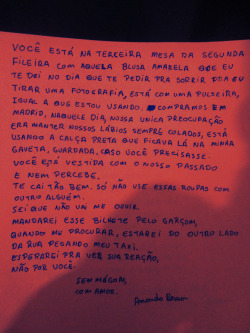 VOCÊ ESTÁ NA TERCEIRA MESA DA SEGUNDA
FILEIRA COM AQUELA BLUSA AMARELA QUE EU
TE DEI NO DIA QUE TE PEDIR PRA SORRIR PRA EU
TIRAR UMA FOTOGRAFIA, ESTÁ COM UMA PULSEIRA,
IGUAL A QUE ESTOU USANDO. COMPRAMOS EM
MADRID, NAQUELE DIA, NOSSA ÚNICA PREOCUPAÇÃO
ERA MANTER NOSSOS LÁBIOS SEMPRE COLADOS, ESTÁ
USANDO A CALÇA PRETA QUE FICAVA LÁ NA MINHA
GAVETA, GUARDADA, CASO VOCÊ PRECISASSE.
VOCÊ ESTÁ VESTIDA COM O NOSSO PASSADO
E NEM PERCEBE.
TE CAI TÃO BEM. SÓ NÃO USE ESSAS ROUPAS COM
OUTRO ALGUÉM.
SEI QUE NÃO VAI ME OUVIR.
MANDAREI ESSE BILHETE PELO GARÇOM,
QUANDO ME PROCURAR, ESTAREI DO OUTRO LADO
DA RUA PEGANDO MEU TAXI.
ESPERAREI PRA VER SUA REAÇÃO,
NÃO POR VOCÊ.
SEM MÁGOA,
COM AMOR.